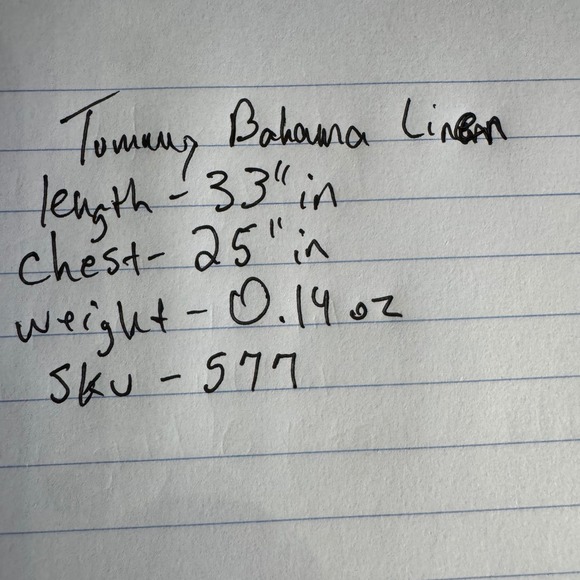 Tommy Bahama Linen
length - 33" in
chest - 25" in
weight - 0.14 oz
SKU - 577